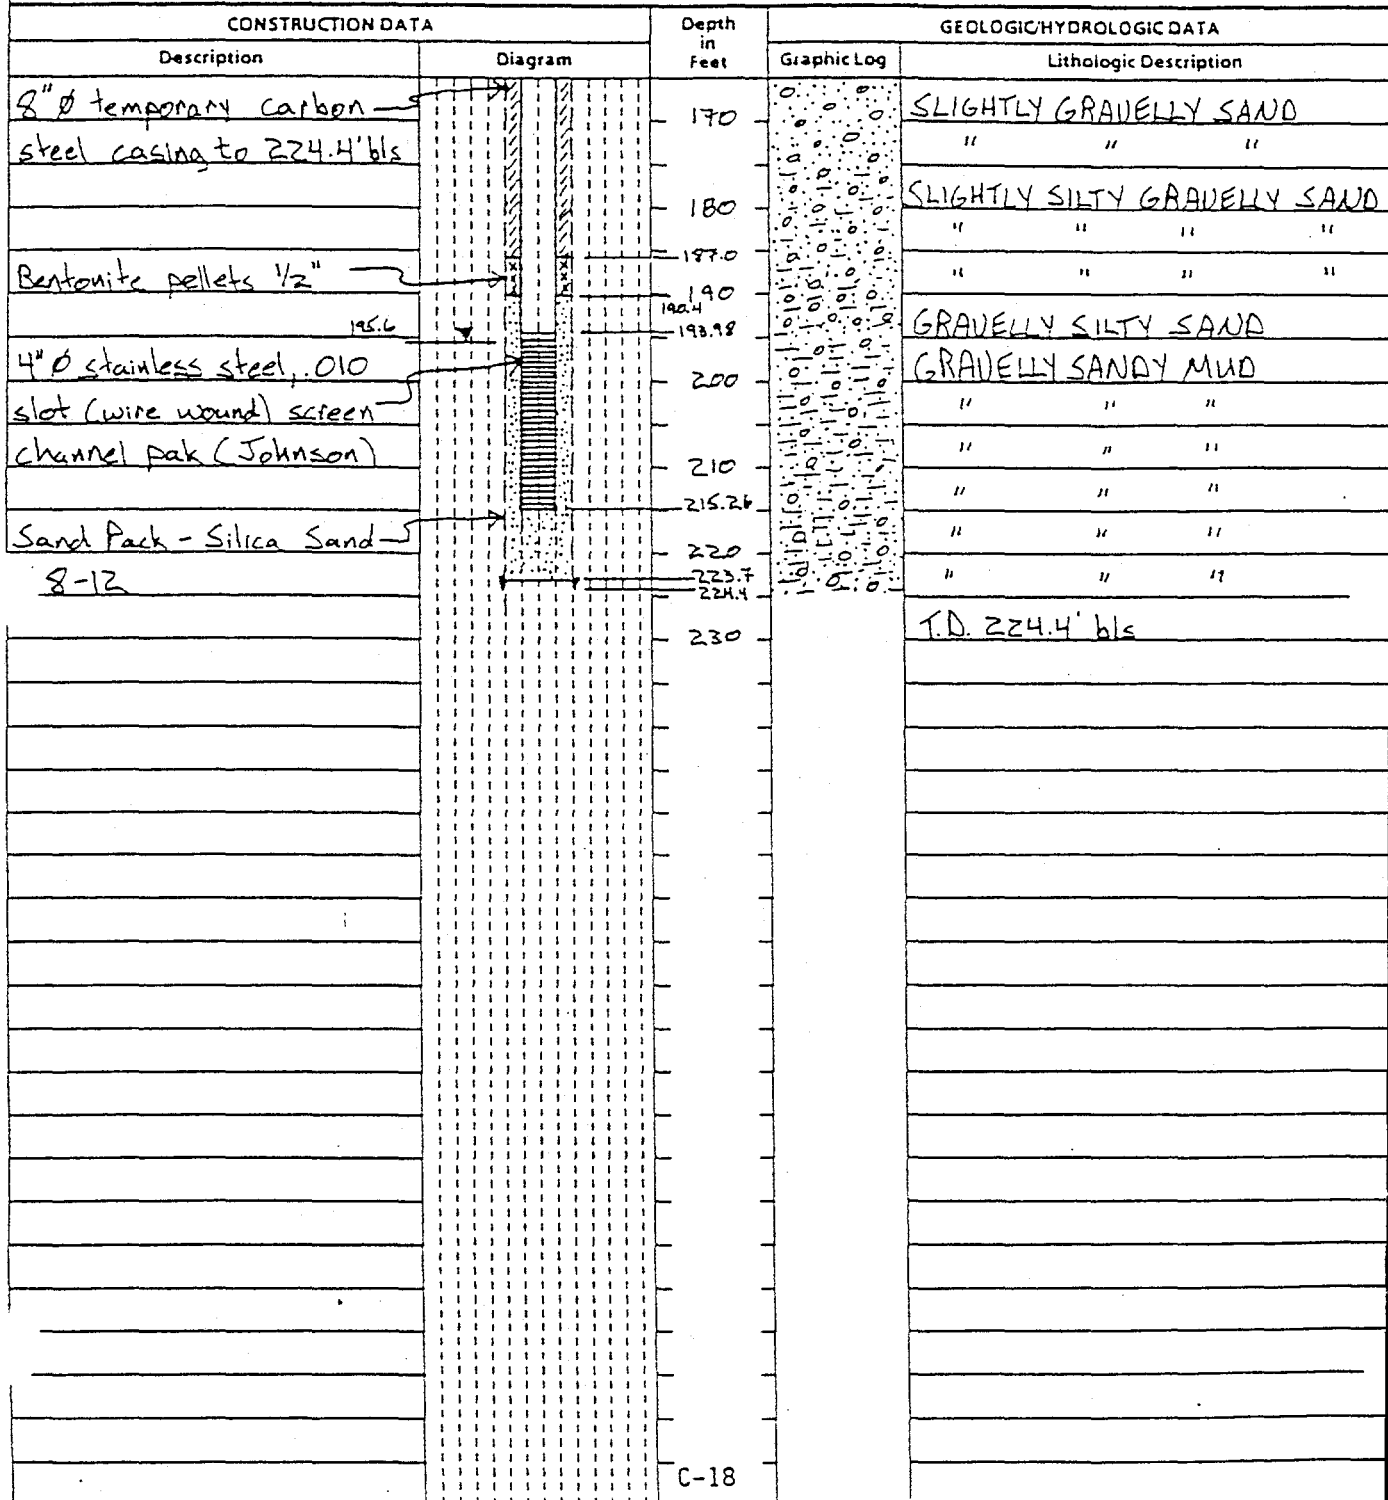 CONSTRUCTION DATA
Depth in Feet
GEOLOGIC/HYDROLOGIC DATA
Description
Diagram
Graphic Log
Lithologic Description
8"Ø temporary carbon
steel casing to 224.4'bls
Bentonite pellets 1/2"
195.6
4"Ø stainless steel, .010
slot (wire wound) screen
channel pak (Johnson)
Sand Pack - Silica Sand
8-12
170
180
187.0
190
190.4
193.98
200
210
215.26
220
223.7
224.4
230
SLIGHTLY GRAVELLY SAND
" " "
SLIGHTLY SILTY GRAVELLY SAND
" " " "
" " " "
GRAVELLY SILTY SAND
GRAVELLY SANDY MUD
" " "
" " "
" " "
" " "
" " "
T.D. 224.4' bls
C-18